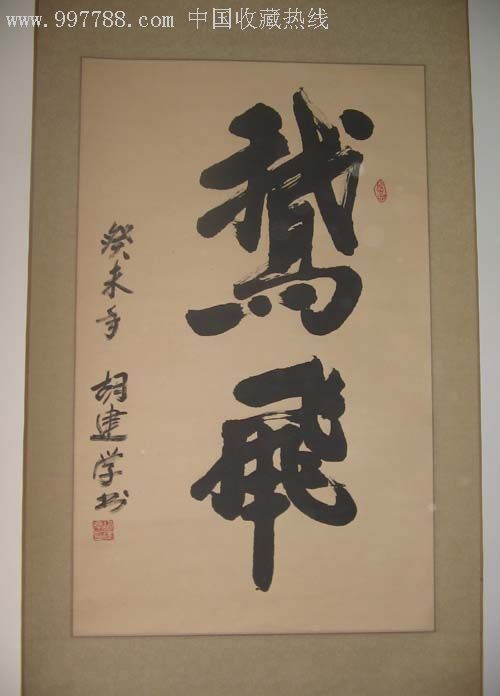 www.997788.com 中国收藏热线
鵞飛
癸未年 胡建学书